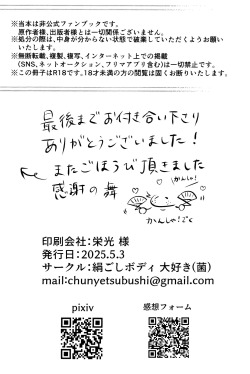 ※当本は非公式ファンブックです。
原作者様、出版者様とは一切関係ございません。
※処分の際は、中身が分からない状態で破棄していただくようお願い
いたします。
※無断転載、複製、複写、インターネット上での掲載
(SNS、ネットオークション、フリマアプリ含む)は一切禁止です。
※この冊子はR18です。18才未満の方の閲覧は固くお断りいたします。
最後までお付き合い下さり
ありがとうございました!
またごほうび頂きました
感謝の舞
かんしゃ!
かんしゃ!
印刷会社:栄光 様
発行日:2025.5.3
サークル:絹ごしボディ 大好き(菌)
mail:chunyetsubushi@gmail.com
pixiv
感想フォーム